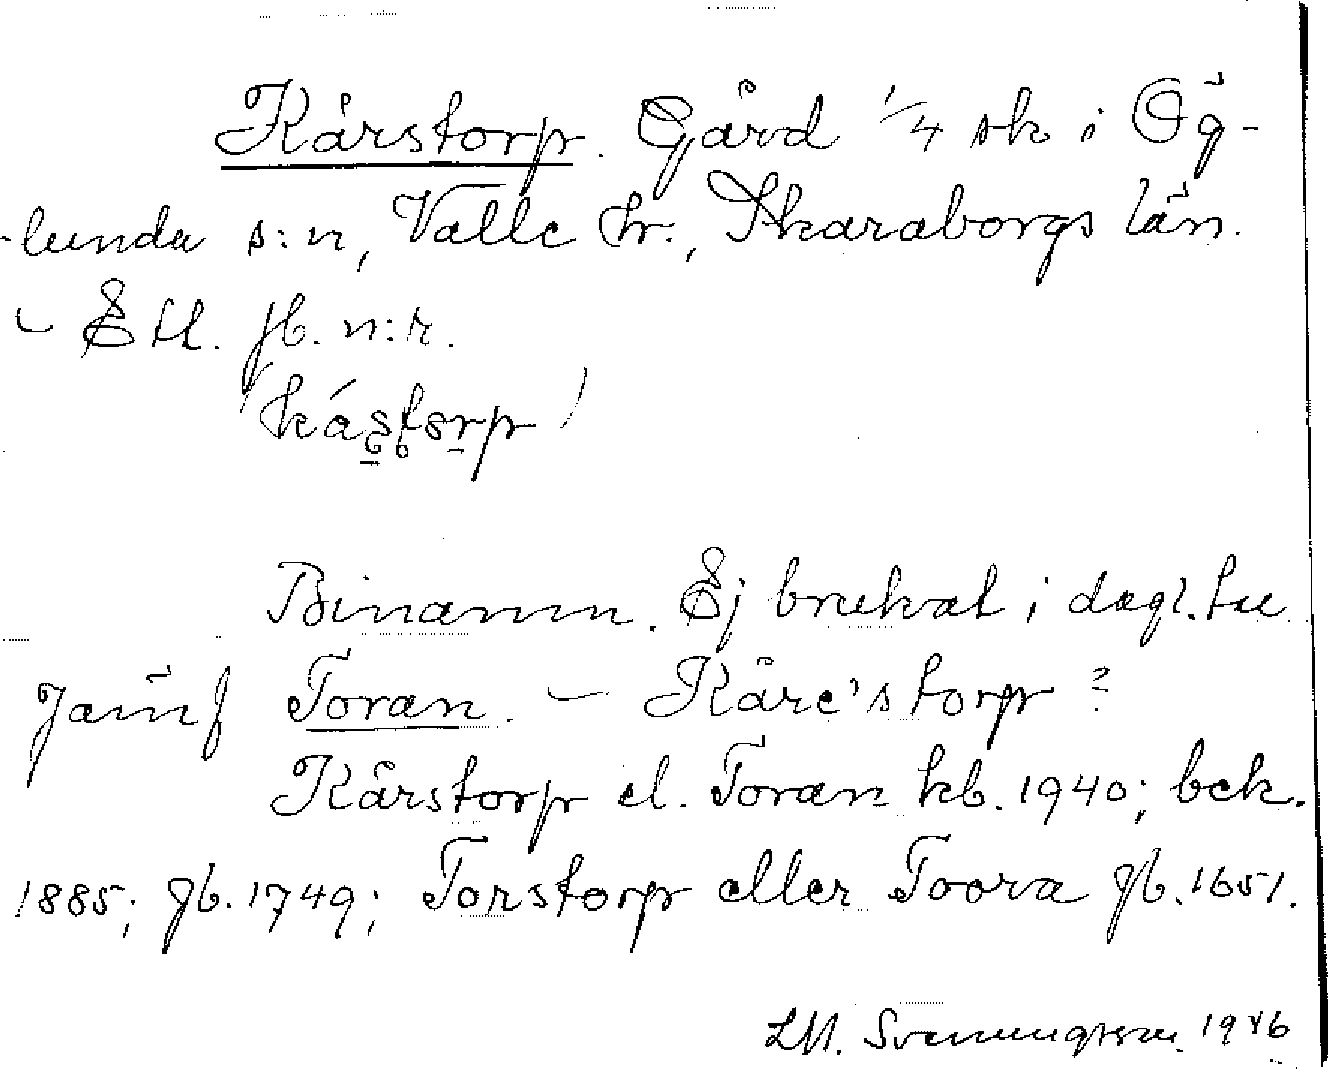 Kårstorp. Gård 1/4 sk i Ög-
lunda s:n, Valle hr., Skaraborgs län.
- Ett. jb. n:r.
Binamn. Ej brukat i dagl. tal
Jämf Toran. - Kåre's torp?
Kårstorp el. Toran kb. 1940; bek.
1885; jb. 1749; Torstorp eller Toora jb. 1651.
1946